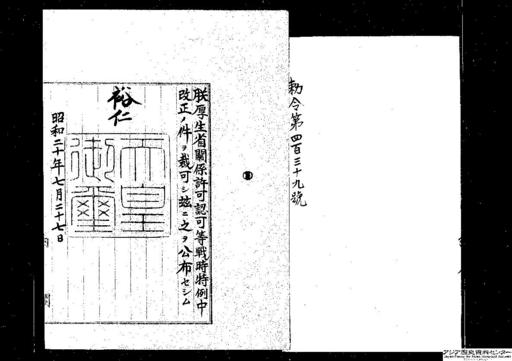 勅令第四百三十九號
朕厚生省關係許可認可等戰時特例中
改正ノ件ヲ裁可シ玆ニ之ヲ公布セシム
裕仁
天皇
御璽
昭和二十年七月二十七日
内閣
アジア歴史資料センター